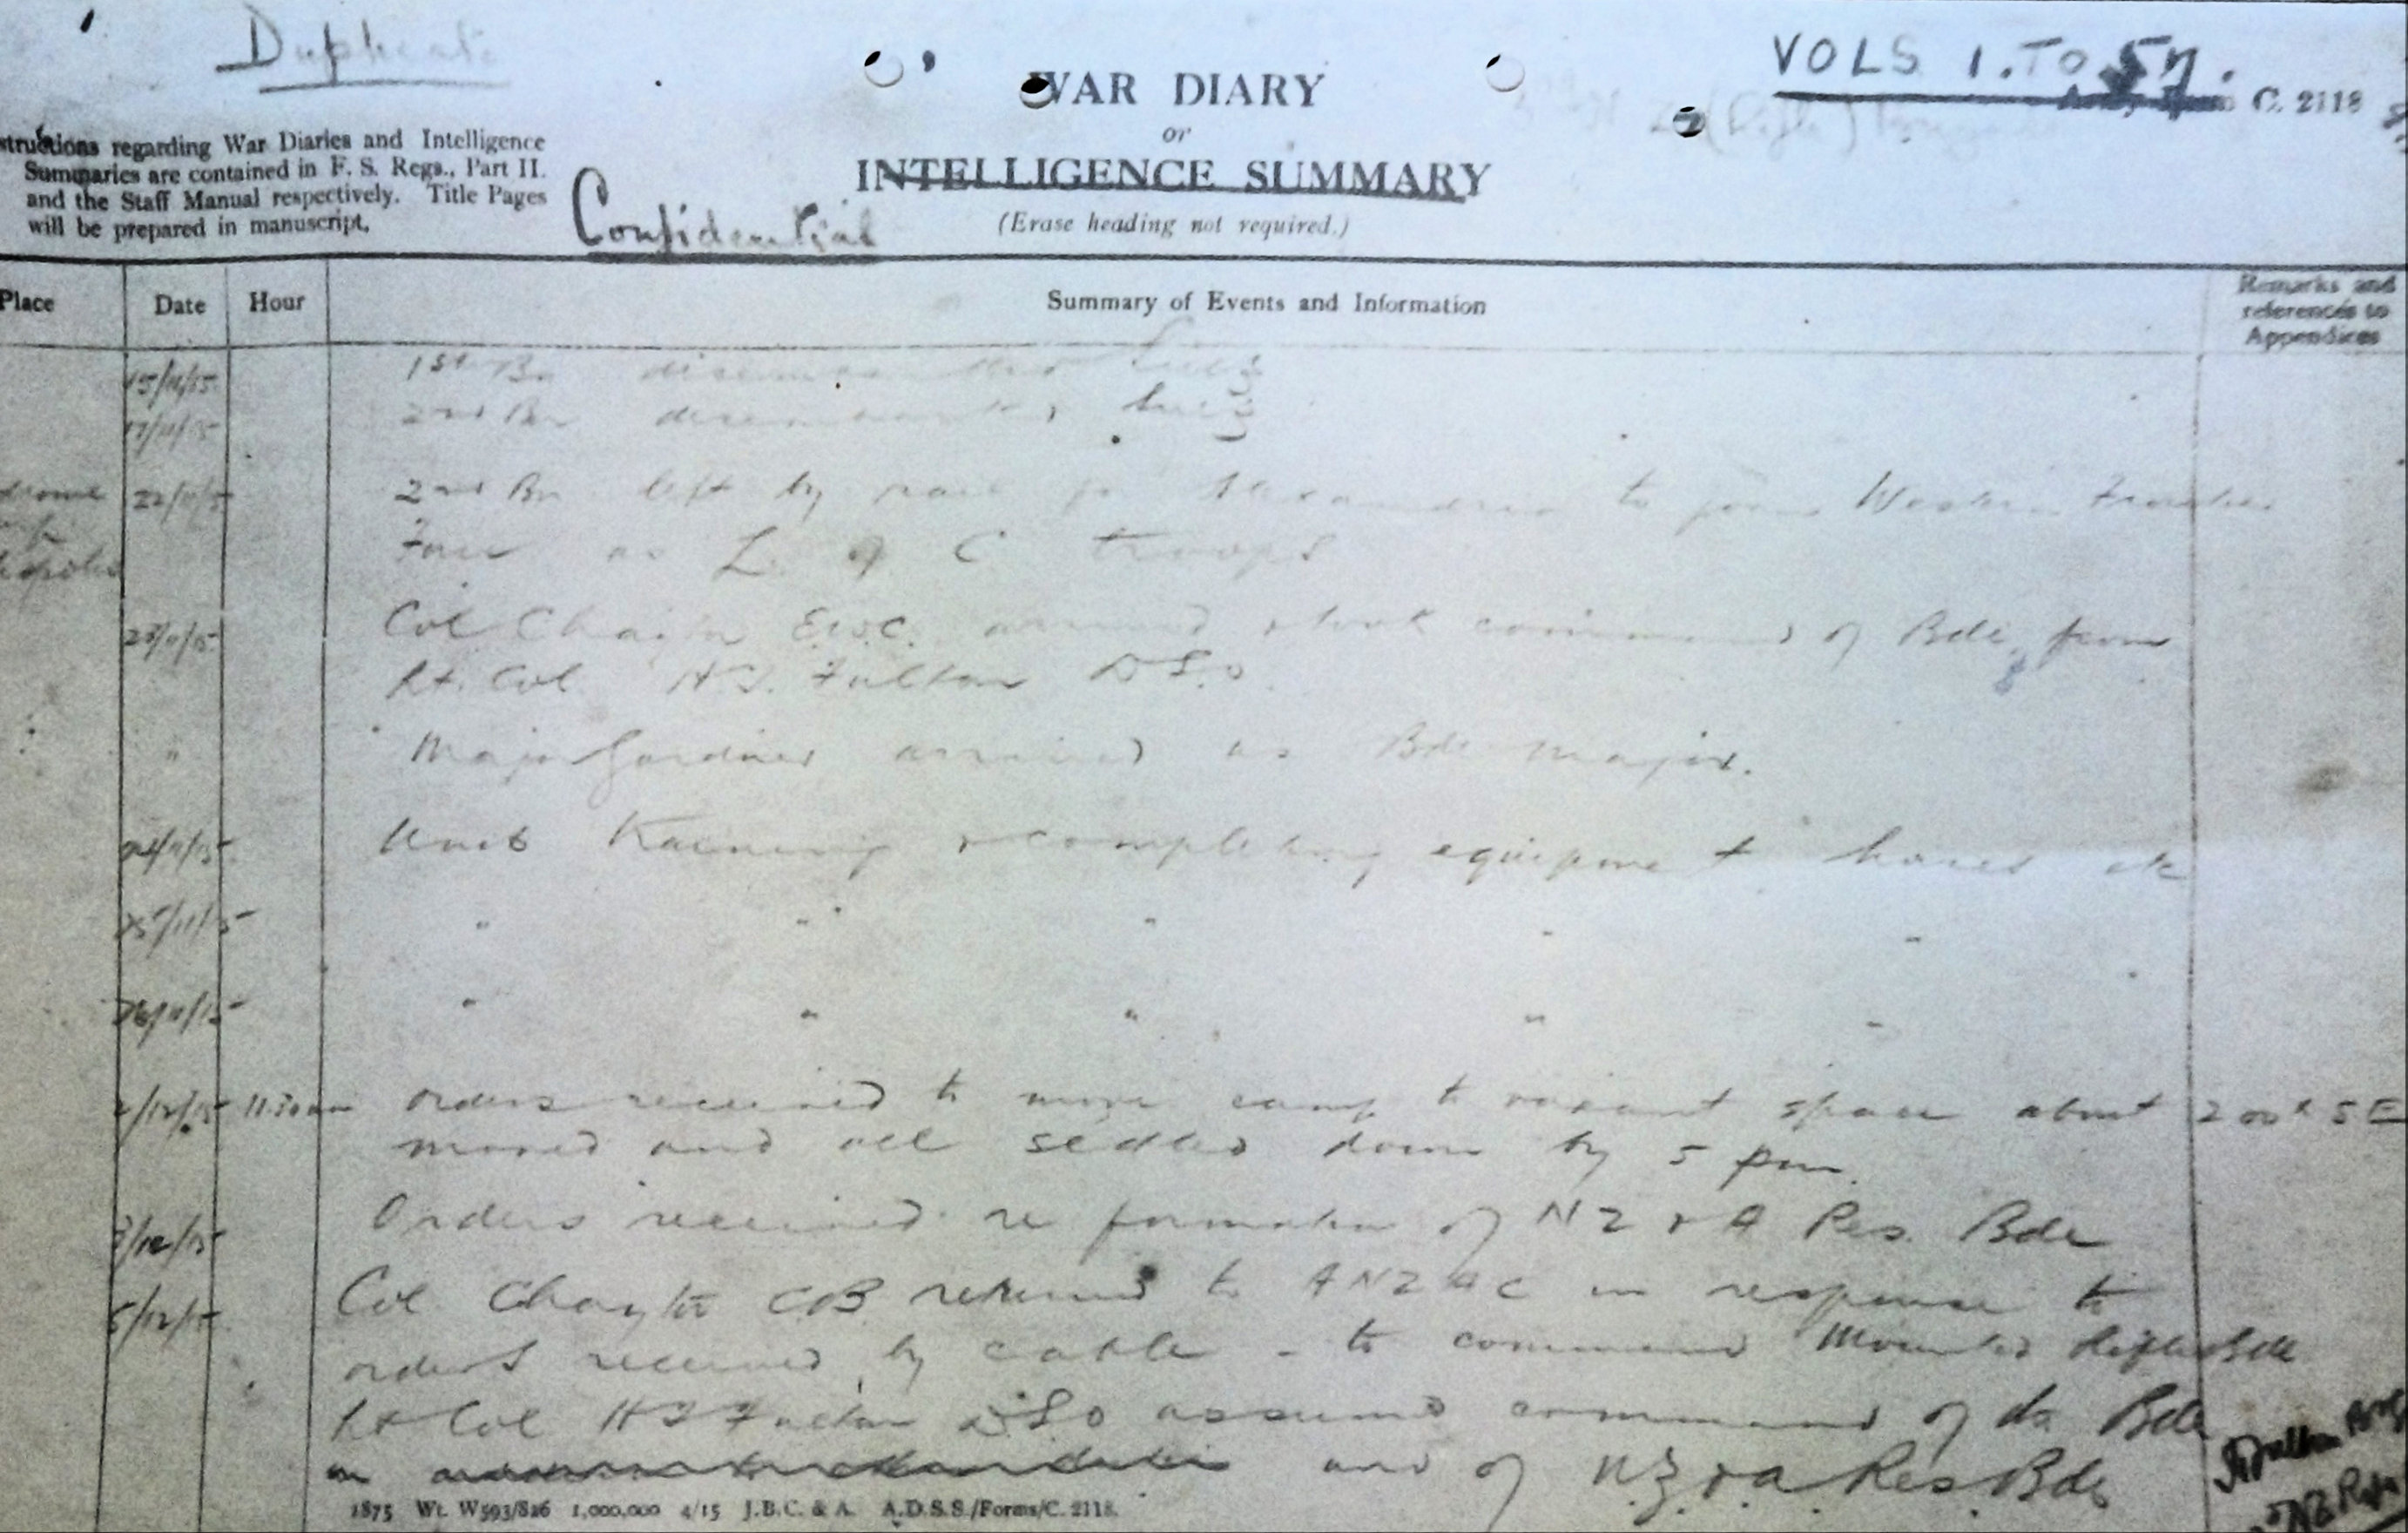 Duplicate
VOLS 1. TO 57.
WAR DIARY
or
INTELLIGENCE SUMMARY
(Erase heading not required.)
Army Form C. 2118
structions regarding War Diaries and Intelligence
Summaries are contained in F. S. Regs., Part II.
and the Staff Manual respectively. Title Pages
will be prepared in manuscript.
Confidential
Place Date Hour Summary of Events and Information Remarks and
references to
Appendices
15/11/15 1st Bn disembarked Suez
17/11/15 2nd Bn disembarked Suez
22/11/15 2nd Bn left by rail for Alexandria to join Western Frontier
Force as L of C troops
23/11/15 Col Chaytor E.W.C. arrived & took command of Bde from
Lt. Col H.T. Fulton DSO
" Major Gardner arrived as Bde Major.
24/11/15 Units Training & completing equipment horses etc
25/11/15 " " " " "
26/11/15 " " " " "
2/12/15 11.30am orders received to move camp to vacant space about 200x SE
moved and all settled down by 5 pm.
3/12/15 Orders received re formation of NZ & A Res. Bde
5/12/15 Col Chaytor CB returned to ANZAC in response to
orders received by cable - to command Mounted Rifles Bde
Lt Col HT Fulton DSO assumed command of the Bde
and of N.Z & A Res Bde
1875 Wt. W593/826 1,000,000 4/15 J.B.C. & A. A.D.S.S./Forms/C. 2118.